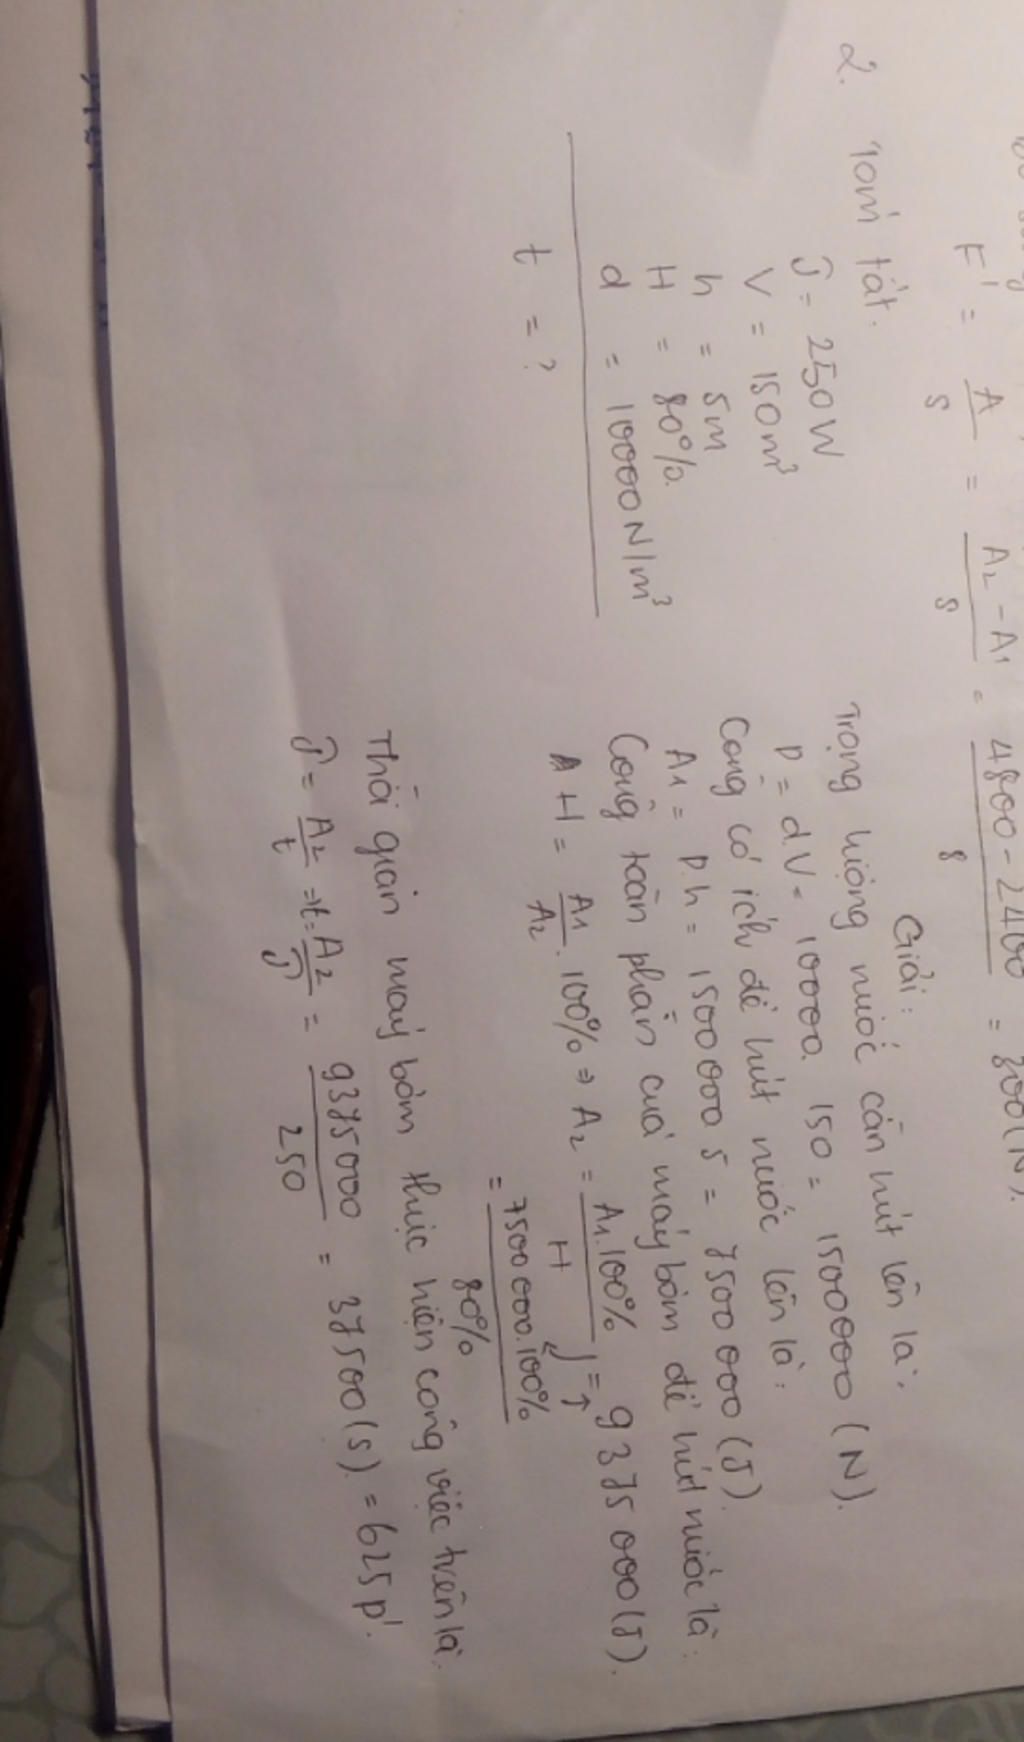 F' = A/S = (A₂ - A₁)/S = (4800 - 2400)/8 = 300(N).
2. Tóm tắt.
𝒫 = 250W
V = 150m³
h = 5m
H = 80%.
d = 10000N/m³
t = ?
Giải:
Trọng lượng nước cần hút lên là:
P = dV = 10000. 150 = 1500000 (N).
Công có ích để hút nước lên là:
A₁ = P.h = 1500000 5 = 7500000 (J).
Công toàn phần của máy bơm để hút nước là:
H = A₁/A₂ . 100% ⇒ A₂ = A₁.100%/H = 9375000(J).
= 7500000.100%/80%
Thời gian máy bơm thực hiện công việc trên là.
𝒫 = A₂/t ⇒ t = A₂/𝒫 = 9375000/250 = 37500(s). = 625p'.